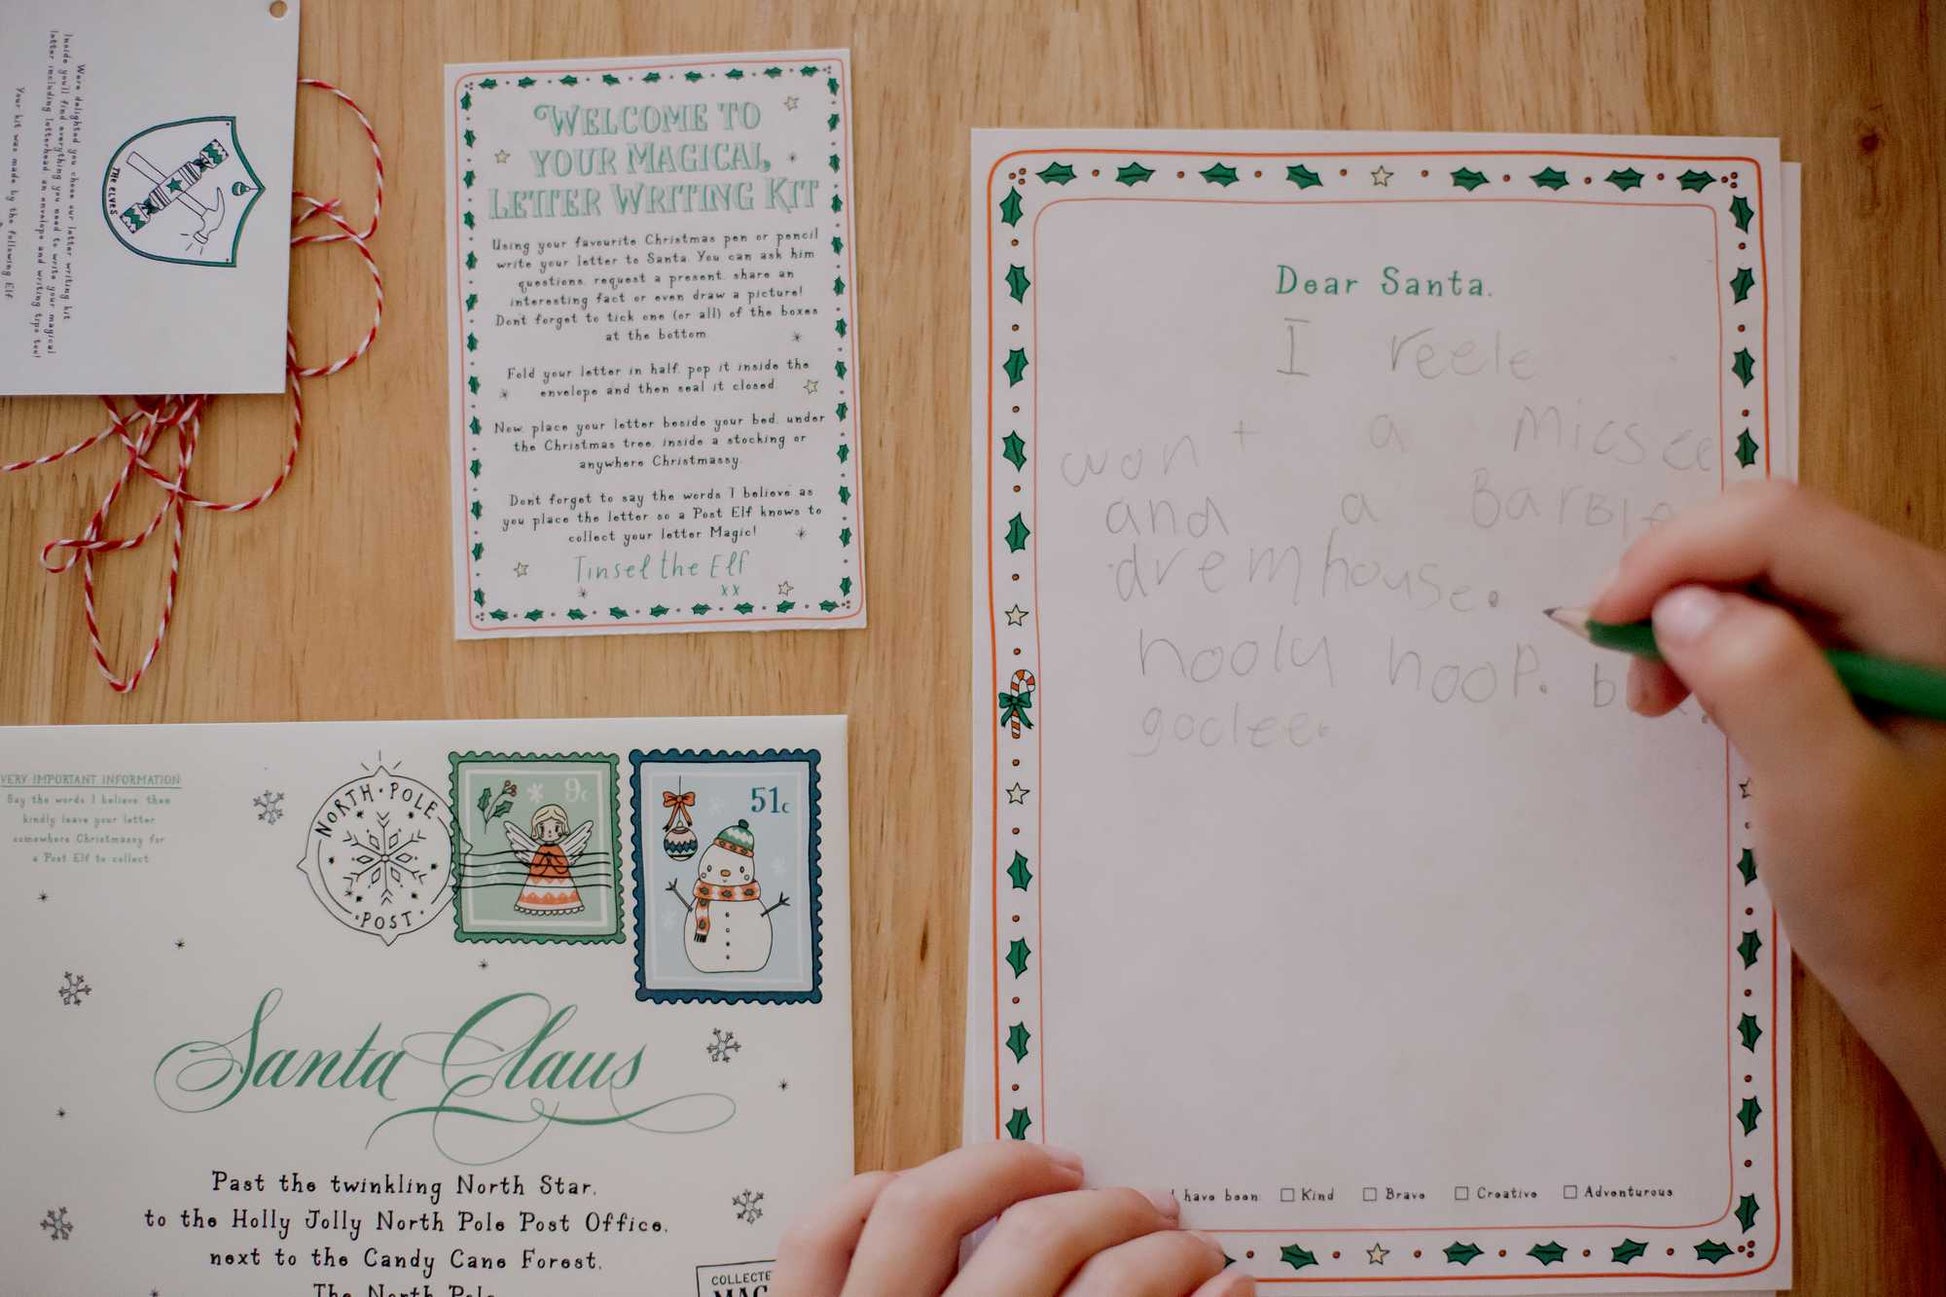 We're delighted you chose our letter writing kit
Inside you'll find everything you need to write your magical
letter including letterhead an envelope and writing tips too!
Your kit was made by the following Elf
THE ELVES
WELCOME TO
YOUR MAGICAL
LETTER WRITING KIT
Using your favourite Christmas pen or pencil
write your letter to Santa. You can ask him
questions, request a present, share an
interesting fact or even draw a picture!
Dont forget to tick one (or all) of the boxes
at the bottom.
Fold your letter in half, pop it inside the
envelope and then seal it closed.
Now, place your letter beside your bed, under
the Christmas tree, inside a stocking or
anywhere Christmassy.
Dont forget to say the words 'I believe' as
you place the letter so a Post Elf knows to
collect your letter Magic!
Tinsel the Elf
xx
VERY IMPORTANT INFORMATION
Say the words I believe then
kindly leave your letter
somewhere Christmassy for
a Post Elf to collect
NORTH • POLE
• POST •
9c
51c
Santa Claus
Past the twinkling North Star,
to the Holly Jolly North Pole Post Office,
next to the Candy Cane Forest,
The North Pole
COLLECTE
MAG
Dear Santa,
I reele
want a micsee
and a BarBie
dremhouse.
hooly hoop.
goclee.
I have been: Kind Brave Creative Adventurous